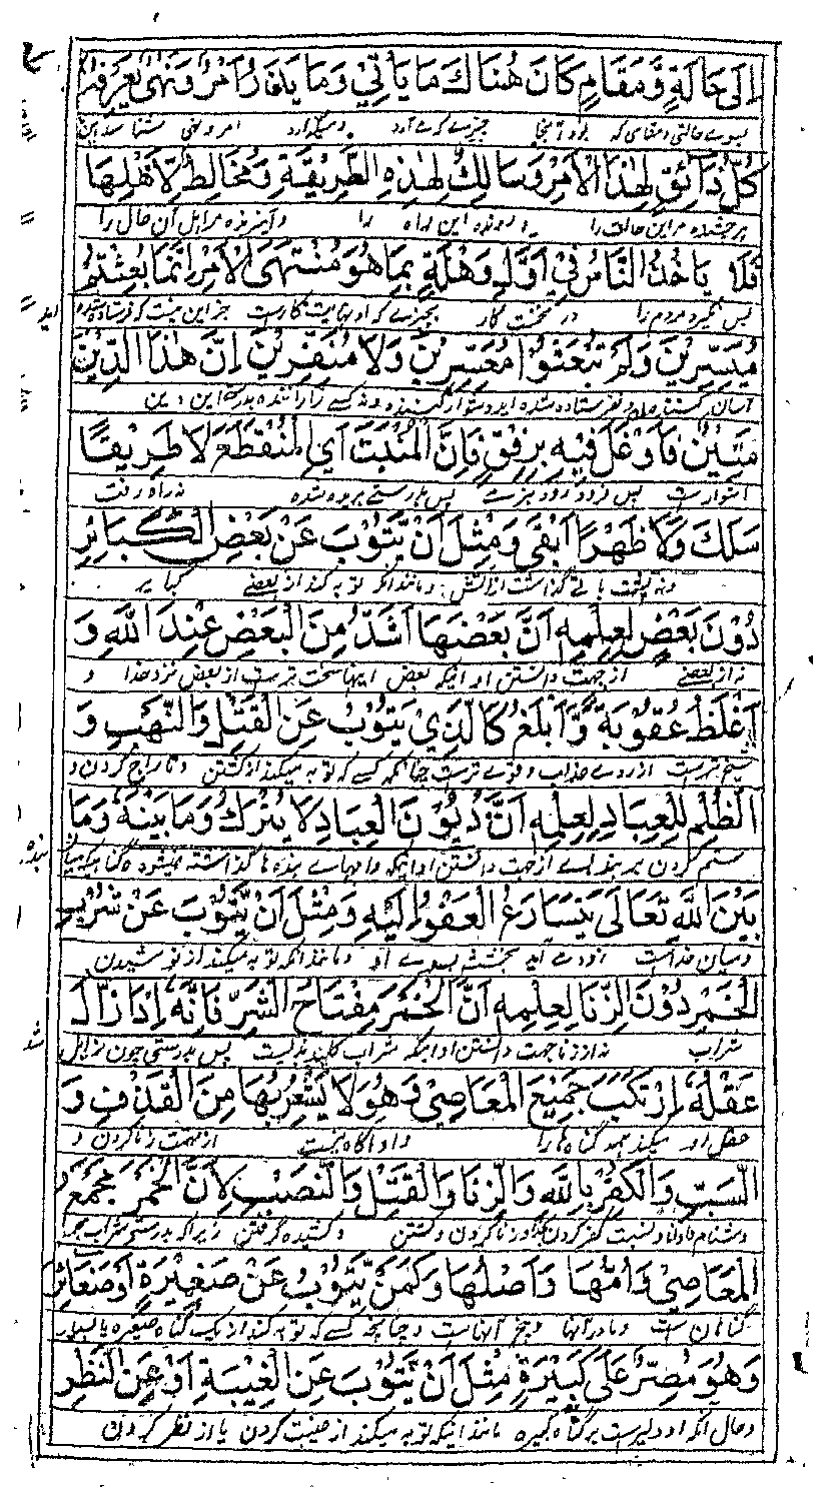 إِلَى حَالَةٍ وَّمَقَامٍ كَانَ هُنَاكَ مَا يَأْتِيْ وَمَا يَذَرُ اَمْرٌ وَنَهْىٌ يَعْرِفُهُ
بسوے حالتی و مقامی کہ بود آنجا چیزیکہ مے آرد و میگذارد امر و نہی
كُلُّ ذَائِقٍ لِهٰذَا الْاَمْرِ وَسَالِكٍ لِهٰذِهِ الطَّرِيْقَةِ وَمُخَالِطٍ لِاَهْلِهَا
ہر چشندہ مر این حالت را و روندہ این راہ را و آمیزندہ مر اہل آن حال را
فَلَا يَأْخُذُ النَّاسُ فِيْ اَوَّلِ وَهْلَةٍ بِمَا هُوَ مُنْتَهَى الْاَمْرِ اِنَّمَا بُعِثْتُمْ
پس نگیرد مردم را در نخست کار بچیزے کہ او نہایت کار ست جز این نیست کہ فرستادہ شدہ اید
مُيَسِّرِيْنَ وَلَمْ تُبْعَثُوْا مُعَسِّرِيْنَ وَلَا مُنَفِّرِيْنَ اِنَّ هٰذَا الدِّيْنَ
آسان کنندہ و نفرستادہ شدہ اید دشوار کنندہ و نہ رانندہ بدرستے این دین
مَتِيْنٌ فَاَوْغِلْ فِيْهِ بِرِفْقٍ فَاِنَّ الْمُنْبَتَّ اَيِ الْمُنْقَطِعَ لَا طَرِيْقًا
استوار ست پس فرو رو در و بنرمی پس بدرستے بریدہ شدہ نہ راہ رفت
سَلَكَ وَلَا ظَهْرًا اَبْقٰى وَمِثْلَ اَنْ يَّتُوْبَ عَنْ بَعْضِ الْكَبَائِرِ
و نہ پشت باقی گذاشت و مانند آنکہ توبہ کند از بعضے کبایر
دُوْنَ بَعْضٍ لِعِلْمِهٖ اَنَّ بَعْضَهَا اَشَدُّ مِنَ الْبَعْضِ عِنْدَ اللّٰهِ وَ
نہ از بعضے از جہت دانستن او اینکہ بعض اینہا سخت تر ست از بعض نزد خدا و
اَغْلَظُ عُقُوْبَةً وَّاَبْلَغُ كَالَّذِيْ يَتُوْبُ عَنِ الْقَتْلِ وَالنَّهْبِ وَ
از روے عذاب و قوے تر ست چنانکہ کسے کہ توبہ میکند از کشتن و تاراج کردن و
الظُّلْمِ لِلْعِبَادِ لِعِلْمِهٖ اَنَّ دُيُوْنَ الْعِبَادِ لَا يُتْرَكُ وَمَا بَيْنَهٗ وَمَا
ستم کردن مر بندہاے از جہت دانستن او اینکہ وامہاے بندہ ہا گذاشتہ نمیشود
بَيْنَ اللّٰهِ تَعَالٰى يَتَسَارَعُ الْعَفْوُ اِلَيْهِ وَمِثْلَ اَنْ يَّتُوْبَ عَنْ شُرْبِ
و میان خداست زود مے آید بخشش بسوے او و مانند آنکہ توبہ میکند از نوشیدن
الْخَمْرِ دُوْنَ الزِّنَا لِعِلْمِهٖ اَنَّ الْخَمْرَ مِفْتَاحُ الشَّرِّ فَاِنَّهٗ اِذَا زَالَ
شراب نہ از زنا جہت دانستن او اینکہ شراب کلید بدیست پس بدرستی چون زایل شد
عَقْلُهٗ اِرْتَكَبَ جَمِيْعَ الْمَعَاصِيْ وَهُوَ لَا يَشْعُرُ بِهَا مِنَ الْقَذْفِ وَ
عقل او میکند ہمہ گناہ ہا را و او آگاہ نیست از تہمت زنا کردن و
السَّبِّ وَالْكُفْرِ بِاللّٰهِ وَالزِّنَا وَالْقَتْلِ وَالْغَصْبِ لِاَنَّ الْخَمْرَ مَجْمَعُ
دشنام و نسبت کفر کردن و زنا کردن و کشتن گرفتن زیرا کہ بدرستے شراب
الْمَعَاصِيْ وَاُمُّهَا وَاَصْلُهَا وَكَمَنْ يَّتُوْبُ عَنْ صَغِيْرَةٍ اَوْ صَغَائِرَ
گناہان ست و مادر آنہا و بیخ آنہاست و چنانچہ کسے کہ توبہ کند از یک گناہ صغیرہ یا بسیار
وَهُوَ مُصِرٌّ عَلٰى كَبِيْرَةٍ مِثْلَ اَنْ يَّتُوْبَ عَنِ الْغِيْبَةِ اَوْ عَنِ النَّظَرِ
و حال آنکہ او دلیر ست بر گناہ کبیرہ مانند اینکہ توبہ میکند از غیبت کردن یا از نظر کردن